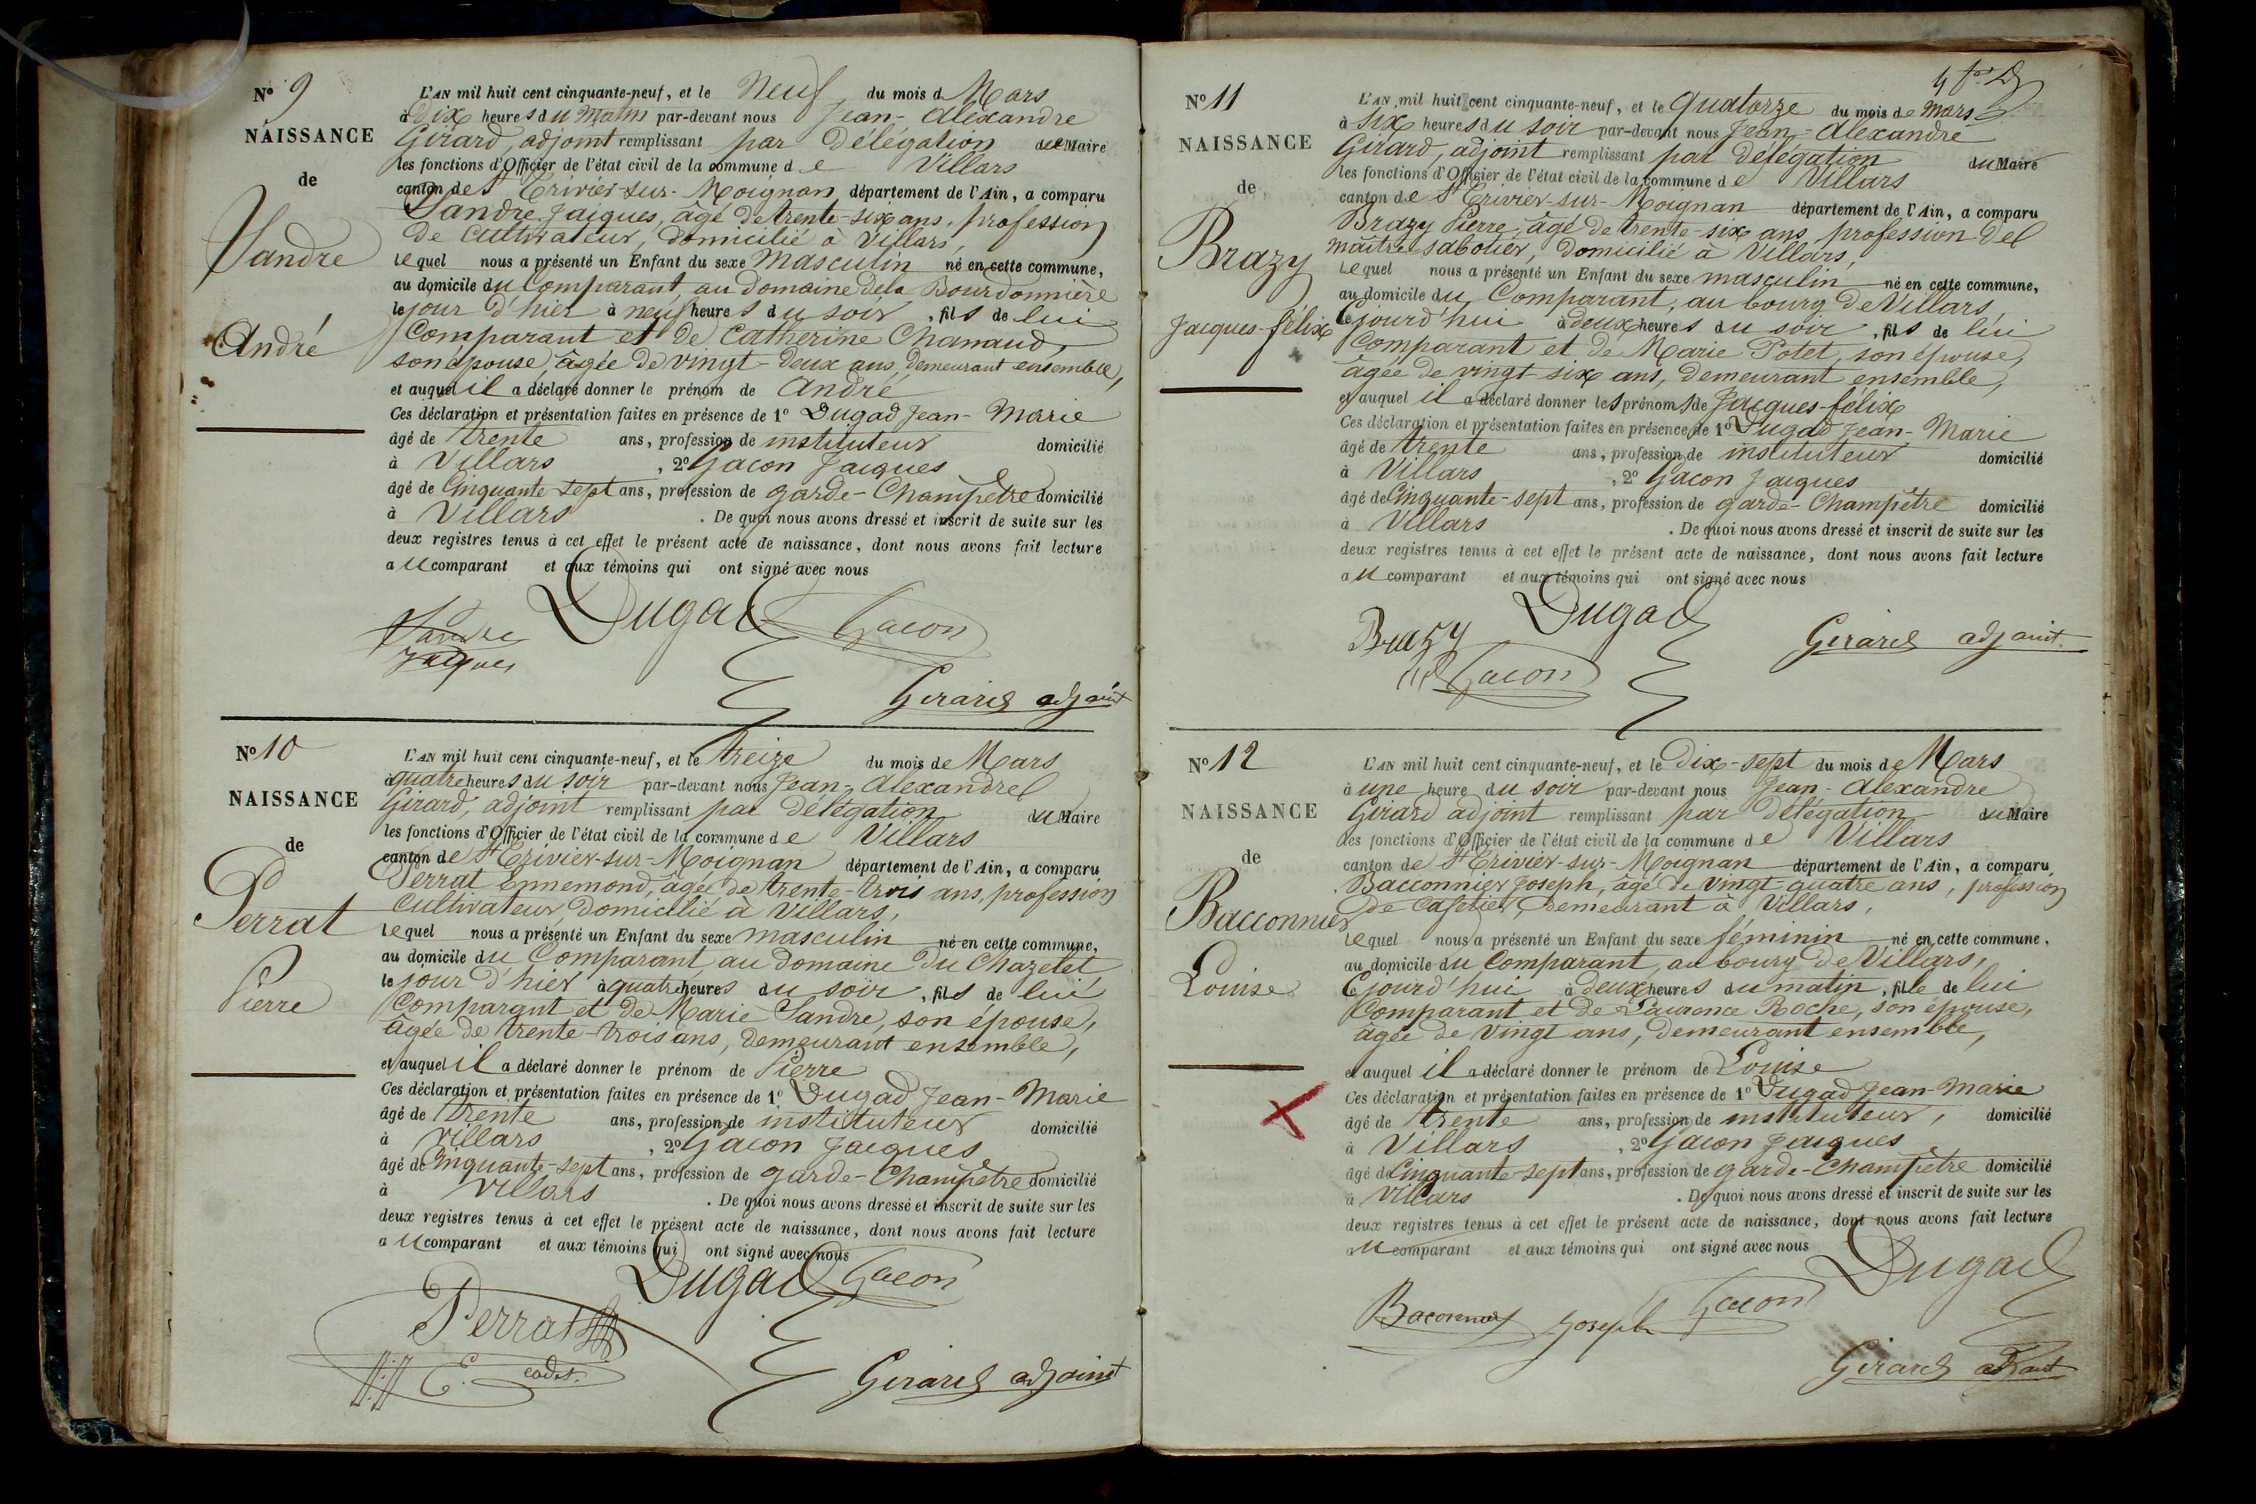 N° 9
NAISSANCE
de
Sandre
André
L'AN mil huit cent cinquante-neuf, et le Neuf du mois d Mars
à Dix heures du Matin par-devant nous Jean-Alexandre
Girard, adjoint remplissant par Délégation du Maire
les fonctions d'Officier de l'état civil de la commune de Villars
canton de St Trivier-sur-Moignan département de l'Ain, a comparu
Sandre Jacques, âgé de trente-six ans, profession
de cultivateur, domicilié à Villars,
lequel nous a présenté un Enfant du sexe masculin né en cette commune,
au domicile du Comparant, au domaine de la Bourdonnière
le jour d'hier à neuf heures du soir, fils de lui
Comparant et de Catherine Chanaud,
son épouse, âgée de vingt-deux ans, demeurant ensemble,
et auquel il a déclaré donner le prénom de André
Ces déclaration et présentation faites en présence de 1° Dugad Jean-Marie
âgé de trente ans, profession de instituteur domicilié
à Villars, 2° Gacon Jacques
âgé de Cinquante-sept ans, profession de garde-Champêtre domicilié
à Villars. De quoi nous avons dressé et inscrit de suite sur les
deux registres tenus à cet effet le présent acte de naissance, dont nous avons fait lecture
au comparant et aux témoins qui ont signé avec nous
Dugad Gacon
Sandre
Jaques
Girard adjoint
N° 10
NAISSANCE
de
Perrat
Pierre
L'AN mil huit cent cinquante-neuf, et le treize du mois de Mars
à quatre heures du soir par-devant nous Jean-Alexandre
Girard, adjoint remplissant par Délégation du Maire
les fonctions d'Officier de l'état civil de la commune de Villars
canton de St Trivier-sur-Moignan département de l'Ain, a comparu
Perrat Ennemond, âgée de trente-trois ans, profession
Cultivateur, domicilié à Villars,
lequel nous a présenté un Enfant du sexe masculin né en cette commune,
au domicile du Comparant, au domaine du Chazelet
le jour d'hier à quatre heures du soir, fils de lui
Comparant et de Marie Sandre, son épouse,
âgée de trente-trois ans, demeurant ensemble,
et auquel il a déclaré donner le prénom de Pierre
Ces déclaration et présentation faites en présence de 1° Dugad Jean-Marie
âgé de trente ans, profession de instituteur domicilié
à Villars, 2° Gacon Jacques
âgé de Cinquante-sept ans, profession de garde-Champêtre domicilié
à Villars. De quoi nous avons dressé et inscrit de suite sur les
deux registres tenus à cet effet le présent acte de naissance, dont nous avons fait lecture
au comparant et aux témoins qui ont signé avec nous
Dugad Gacon
Perrat
E. cadet.
Girard adjoint
N° 11
NAISSANCE
de
Brazy
Jacques-félix
L'AN mil huit cent cinquante-neuf, et le quatorze du mois de mars
à six heures du soir par-devant nous Jean-Alexandre
Girard, adjoint remplissant par Délégation du Maire
les fonctions d'Officier de l'état civil de la commune de Villars
canton de St Trivier-sur-Moignan département de l'Ain, a comparu
Brazy Pierre, âgé de trente-six ans, profession de
maître sabotier, domicilié à Villars,
lequel nous a présenté un Enfant du sexe masculin né en cette commune,
au domicile du Comparant, au bourg de Villars,
Cejourd'hui à deux heures du soir, fils de lui
Comparant et de Marie Potet, son épouse,
âgée de vingt-six ans, demeurant ensemble,
et auquel il a déclaré donner les prénoms de Jacques-félix
Ces déclaration et présentation faites en présence de 1° Dugad Jean-Marie
âgé de trente ans, profession de instituteur domicilié
à Villars, 2° Gacon Jacques
âgé de Cinquante-sept ans, profession de garde-Champêtre domicilié
à Villars. De quoi nous avons dressé et inscrit de suite sur les
deux registres tenus à cet effet le présent acte de naissance, dont nous avons fait lecture
au comparant et aux témoins qui ont signé avec nous
Dugad
Brazy Girard adjoint.
Gacon
N° 12
NAISSANCE
de
Bacconnier
Louise
L'AN mil huit cent cinquante-neuf, et le Dix-sept du mois de Mars
à une heure du soir par-devant nous Jean-Alexandre
Girard adjoint remplissant par Délégation du Maire
les fonctions d'Officier de l'état civil de la commune de Villars
canton de St Trivier-sur-Moignan département de l'Ain, a comparu
Bacconnier Joseph, âgé de vingt-quatre ans, profession
de cafetier, demeurant à Villars,
lequel nous a présenté un Enfant du sexe féminin né en cette commune,
au domicile du Comparant, au bourg de Villars,
Cejourd'hui à deux heures du matin, fille de lui
Comparant et de Laurence Roche, son épouse,
âgée de Vingt ans, demeurant ensemble,
et auquel il a déclaré donner le prénom de Louise
Ces déclaration et présentation faites en présence de 1° Dugad Jean-Marie
âgé de trente ans, profession de instituteur, domicilié
à Villars, 2° Gacon Jacques
âgé de Cinquante-sept ans, profession de garde-Champêtre domicilié
à Villars. De quoi nous avons dressé et inscrit de suite sur les
deux registres tenus à cet effet le présent acte de naissance, dont nous avons fait lecture
au comparant et aux témoins qui ont signé avec nous
Dugad
Baconnier Joseph Gacon
Girard adjoint